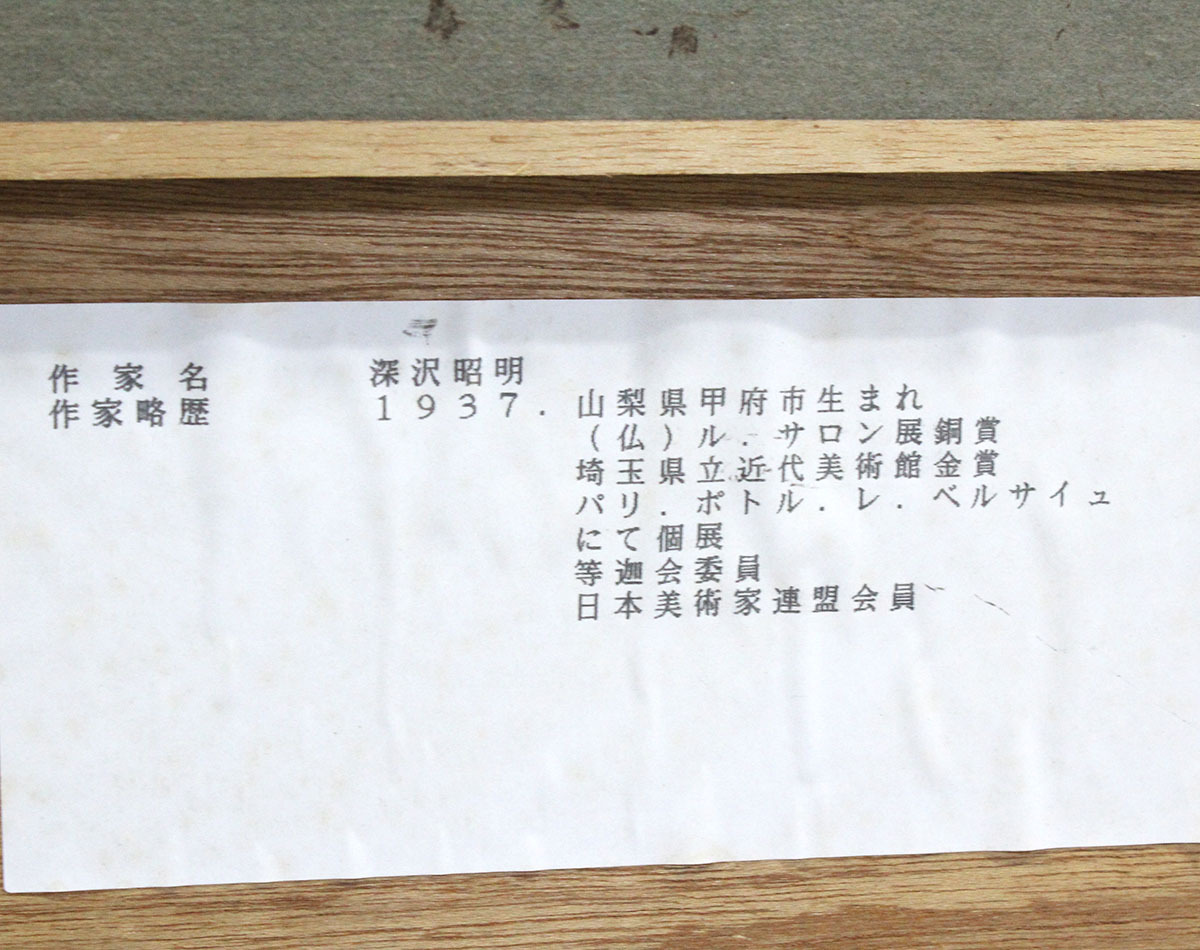 作家名 深沢昭明
作家略歴 1937. 山梨県甲府市生まれ
(仏)ル.サロン展銅賞
埼玉県立近代美術館金賞
パリ.ポトル.レ.ベルサイュ
にて個展
等迦会委員
日本美術家連盟会員